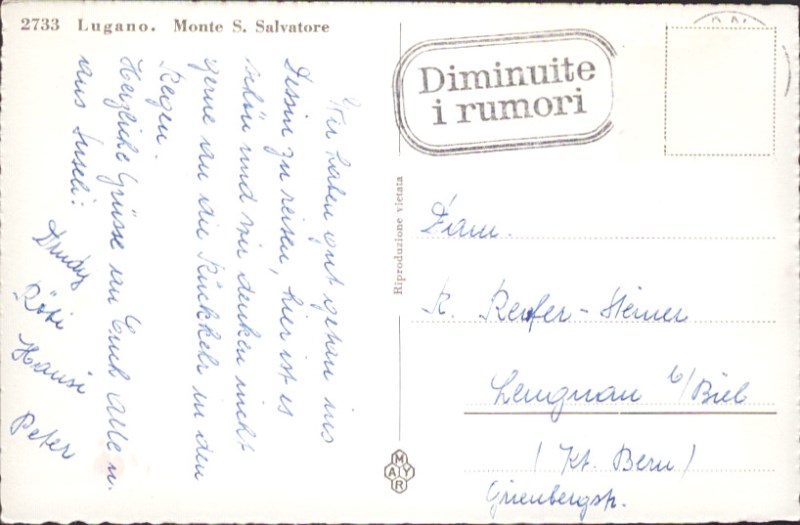 2733 Lugano. Monte S. Salvatore
Diminuite
i rumori
Wir haben gut getan ins
Tessin zu reisen, hier ist es
schön und wir denken nicht
gerne an die Rückkehr in den
Regen.
Herzliche Grüsse an Euch allen.
aus
Rösi
Hansi
Peter
Riproduzione vietata
Fam.
R. Renfer-Heiner
Lengnau b/Biel
(Kt. Bern)
Grienbergstr.
MAYR